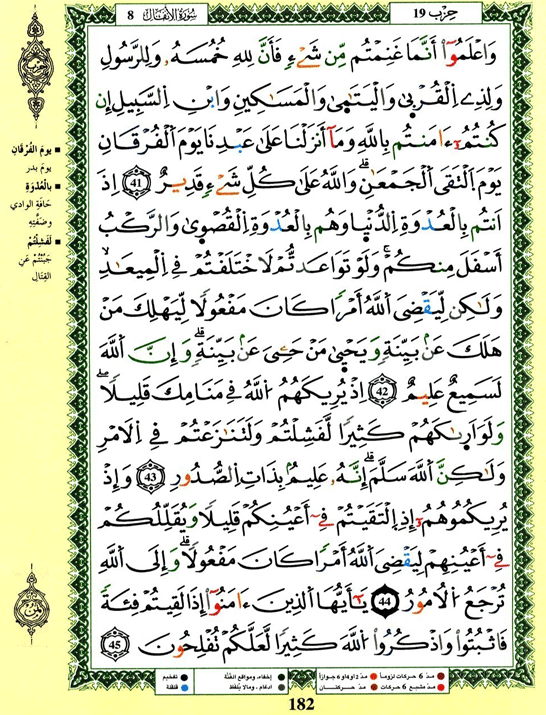 حزب 19
سُورَةُ الأَنفَال 8
وَاعْلَمُوٓاْ أَنَّمَا غَنِمْتُم مِّن شَےْءٖ فَأَنَّ لِلهِ خُمُسَهُۥ وَلِلرَّسُولِ
وَلِذِے اِلْقُرْب۪ىٰ وَالْيَتَٰم۪ىٰ وَالْمَسَٰكِينِ وَابْنِ اِ۬لسَّبِيلِ إِن
كُنتُمُۥٓ ءَامَنتُم بِاللَّهِ وَمَآ أَنزَلْنَا عَلَىٰ عَبْدِنَا يَوْمَ اَ۬لْفُرْقَانِ
يَوْمَ اَ۬لْتَقَى اَ۬لْجَمْعَٰنِۖ وَاللَّهُ عَلَىٰ كُلِّ شَےْءٖ قَدِيرٌ 41 إِذَ
اَنتُم بِالْعُدْوَةِ اِ۬لدُّنْي۪ا وَهُم بِالْعُدْوَةِ اِ۬لْقُصْو۪ىٰ وَالرَّكْبُ
أَسْفَلَ مِنكُمْۖ وَلَوْ تَوَاعَدتُّمْ لَاخْتَلَفْتُمْ فِے اِ۬لْمِيعَٰدِ
وَلَٰكِن لِّيَقْضِىَ اَ۬للَّهُ أَمْراٗ كَانَ مَفْعُولاٗ لِّيَهْلِكَ مَنْ
هَلَكَ عَنۢ بَيِّنَةٖ وَيَحْيَىٰ مَنْ حَيِىَ عَنۢ بَيِّنَةٖۖ وَإِنَّ اَ۬للَّهَ
لَسَمِيعٌ عَلِيمٌ 42 اِذْ يُرِيكَهُمُ اُ۬للَّهُ فِے مَنَامِكَ قَلِيلاٗۖ
وَلَوَ اَر۪يٰكَهُمْ كَثِيراٗ لَّفَشِلْتُمْ وَلَتَنَٰزَعْتُمْ فِے اِ۬لَامْرِ
وَلَٰكِنَّ اَ۬للَّهَ سَلَّمَۖ إِنَّهُۥ عَلِيمُۢ بِذَاتِ اِ۬لصُّدُورِ 43 وَإِذْ
يُرِيكُمُوهُمُۥٓ إِذِ اِ۬لْتَقَيْتُمْ فِےٓ أَعْيُنِكُمْ قَلِيلاٗ وَيُقَلِّلُكُمْ
فِےٓ أَعْيُنِهِمْ لِيَقْضِىَ اَ۬للَّهُ أَمْراٗ كَانَ مَفْعُولاٗۖ وَإِلَى اَ۬للَّهِ
تُرْجَعُ اُ۬لُامُورُ 44 يَٰٓأَيُّهَا اَ۬لذِينَ ءَامَنُوٓاْ إِذَا لَقِيتُمْ فِئَةٗ
فَاثْبُتُواْ وَاذْكُرُواْ اُ۬للَّهَ كَثِيراٗ لَّعَلَّكُمْ تُفْلِحُونَ 45
■ يومَ الفُرْقَانِ
يومَ بدر
■ بالعُدْوَةِ
حافّةِ الوادي
وضفَّتِه
■ لَفَشِلْتُمْ
جَبُنْتُمْ عن
القِتَال
مدّ 6 حركات لزوماً
مدّ 2 أو 4 أو 6 جوازاً
إخفاء، ومواقع الغُنَّة
تفخيم
مدّ مشبع 6 حركات
مدّ حركتان
إدغام، وما لا يُلفَظ
قلقلة
182